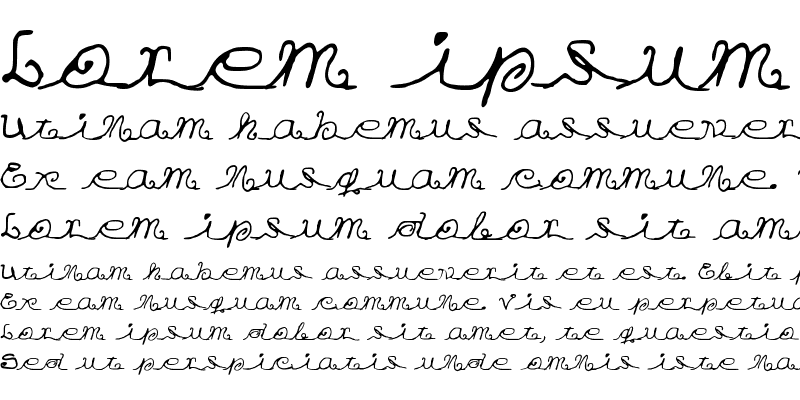 Lorem ipsum
Utinam habemus assuever
Ex eam nusquam commune.
Lorem ipsum dolor sit am
Utinam habemus assueverit et est. Elit p
Ex eam nusquam commune. Vis eu perpetua
Lorem ipsum dolor sit amet, te quaestio
Sed ut perspiciatis unde omnis iste na